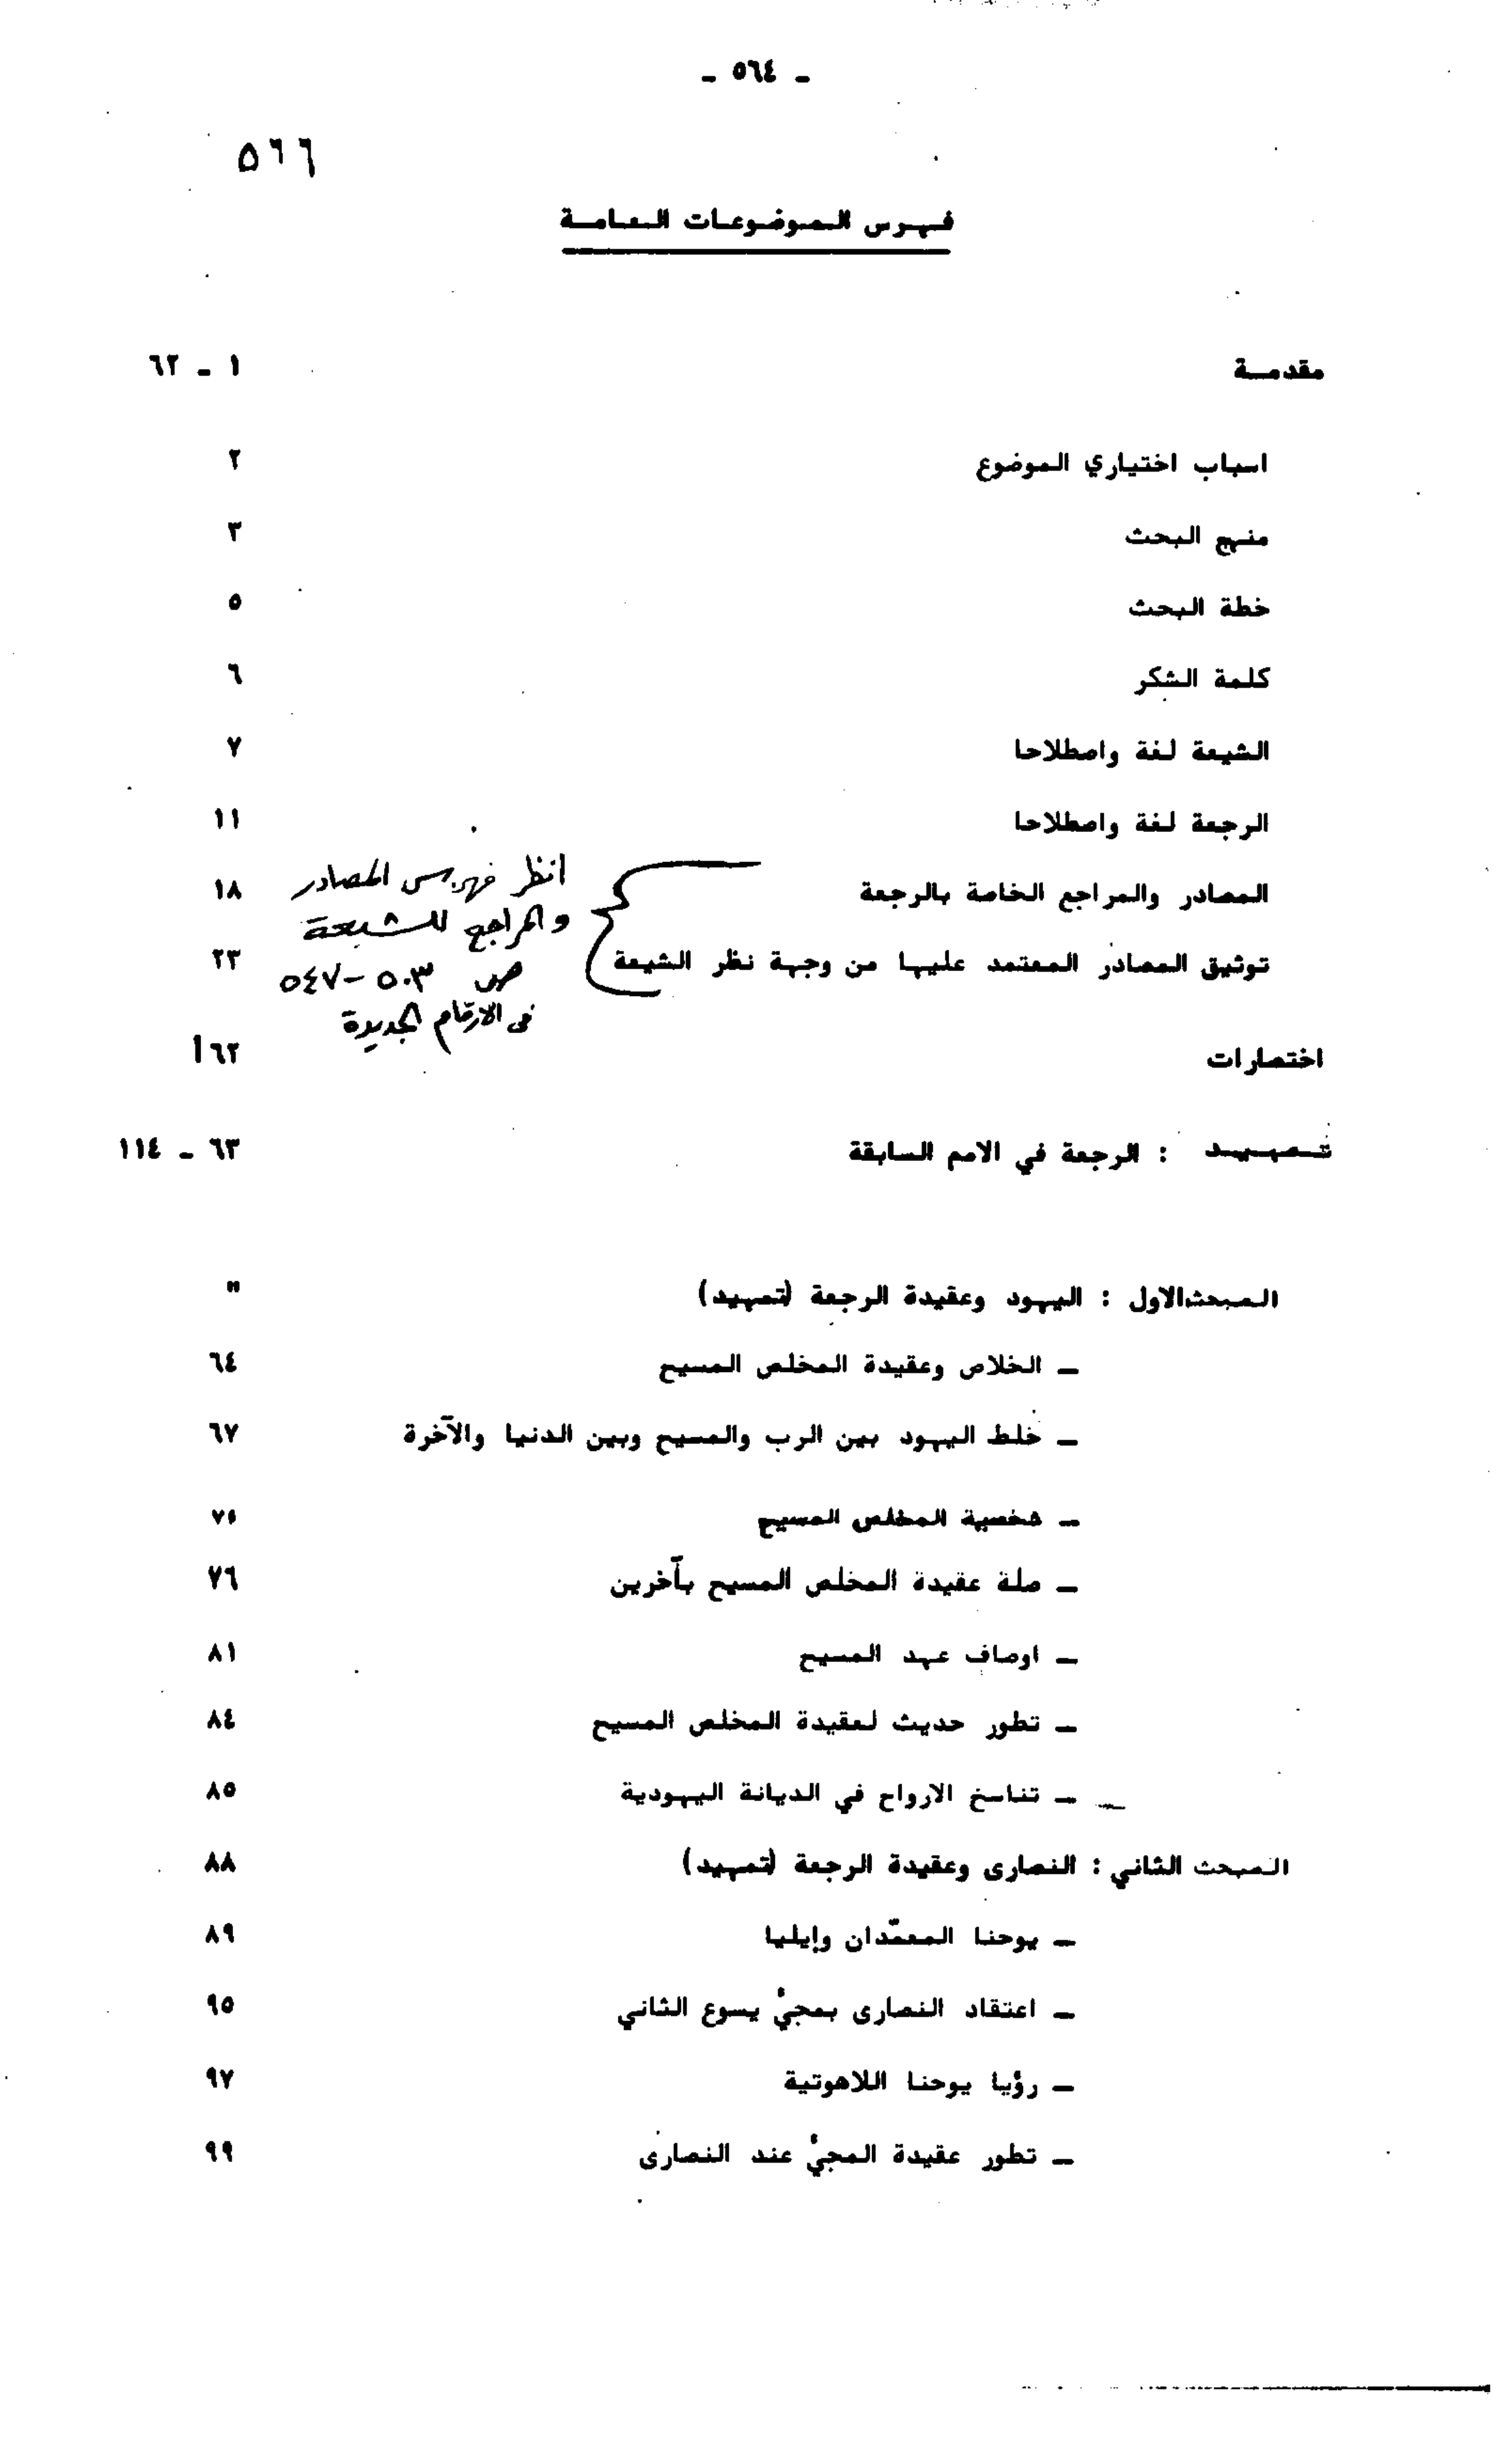 - ٥٦٤ -
٥٦٦
فهرس الموضوعات العامة
مقدمة ١ - ٦٢
اسباب اختياري الموضوع ٢
منهج البحث ٣
خطة البحث ٥
كلمة الشكر ٦
الشيعة لغة واصطلاحا ٧
الرجعة لغة واصطلاحا ١١
المصادر والمراجع الخاصة بالرجعة ١٨
توثيق المصادر المعتمد عليها من وجهة نظر الشيعة ٢٣
انظر فهرس المصادر
والمراجع للشيعة
ص ٥٠٣ - ٥٤٧
في الارقام الجديدة
اختصارات ٦٢أ
تمهيد : الرجعة في الامم السابقة ٦٣ - ١١٤
المبحث الاول : اليهود وعقيدة الرجعة (تمهيد) "
- الخلاص وعقيدة المخلص المسيح ٦٤
- خلط اليهود بين الرب والمسيح وبين الدنيا والآخرة ٦٧
- شخصية المخلص المسيح ٧٥
- صلة عقيدة المخلص المسيح بآخرين ٧٦
- اوصاف عهد المسيح ٨١
- تطور حديث لعقيدة المخلص المسيح ٨٤
- تناسخ الارواح في الديانة اليهودية ٨٥
المبحث الثاني : النصارى وعقيدة الرجعة (تمهيد) ٨٨
- يوحنا المعمّدان وإيليا ٨٩
- اعتقاد النصارى بمجئ يسوع الثاني ٩٥
- رؤيا يوحنا اللاهوتية ٩٧
- تطور عقيدة المجئ عند النصارى ٩٩